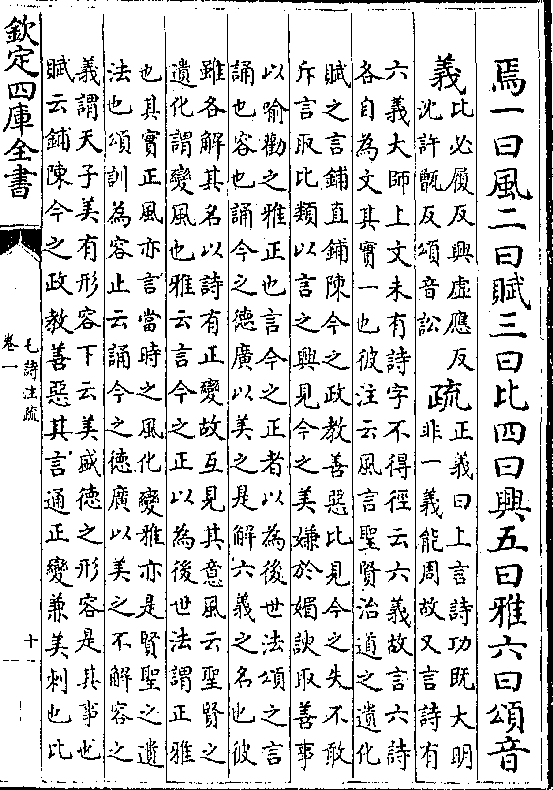 焉一曰風二曰賦三曰比四曰興五曰雅六曰頌音
義比必履反興虛應反
沈許甑反頌音訟
疏正義曰上言詩功既大明
非一義能周故又言詩有
六義大師上文未有詩字不得徑云六義故言六詩
各自為文其實一也彼注云風言聖賢治道之遺化
賦之言鋪直鋪陳今之政教善惡比見今之失不敢
斥言取比類以言之興見今之美嫌於媚諛取善事
以喻勸之雅正也言今之正者以為後世法頌之言
誦也容也誦今之德廣以美之是解六義之名也彼
雖各解其名以詩有正變故互見其意風云聖賢之
遺化謂變風也雅云言今之正以為後世法謂正雅
也其實正風亦言當時之風化變雅亦是賢聖之遺
法也頌訓為容止云誦今之德廣以美之不解容之
義謂天子美有形容下云美盛德之形容是其事也
賦云鋪陳今之政教善惡其言通正變兼美刺也比
欽定四庫全書
毛詩注疏
卷一
十